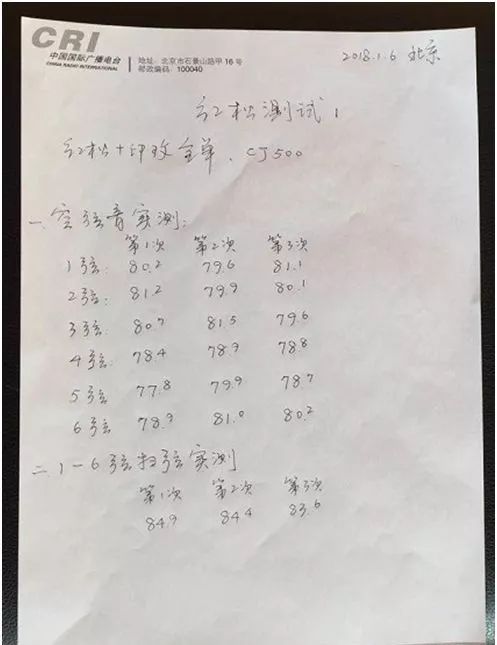 CRI
中国国际广播电台
CHINA RADIO INTERNATIONAL
地址：北京市石景山路甲 16 号
邮政编码：100040
2018.1.6 北京
红松测试 1
红松+印玫全单、CJ500
一、空弦音实测：
第1次 第2次 第3次
1弦： 80.2 79.6 81.1
2弦： 81.2 79.9 80.1
3弦： 80.7 81.5 79.6
4弦： 78.4 78.9 78.8
5弦 77.8 79.9 78.7
6弦 78.9 81.0 80.2
二、1-6弦扫弦实测
第1次 第2次 第3次
84.9 84.4 83.6